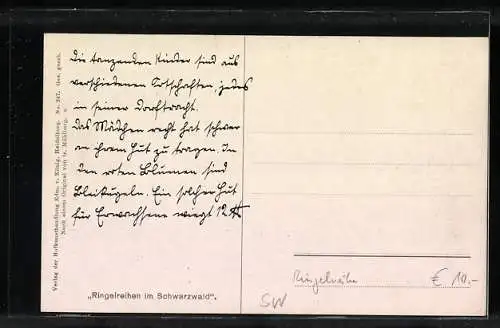 Die tanzenden Kinder sind aus
verschiedenen Ortschaften, jedes
in seiner Dorftracht.
Das Mädchen recht hat schwer
an ihrem Hut zu tragen. In
den roten Blumen sind
Bleikugeln. Ein solcher Hut
für Erwachsene wiegt 12 ℔
„Ringelreihen im Schwarzwald“.
Verlag der Hofkunsthandlung Edm. v. König, Heidelberg. No. 247. Ges. gesch.
Nach einem Original von
Ringelreihe € 10.-
SW